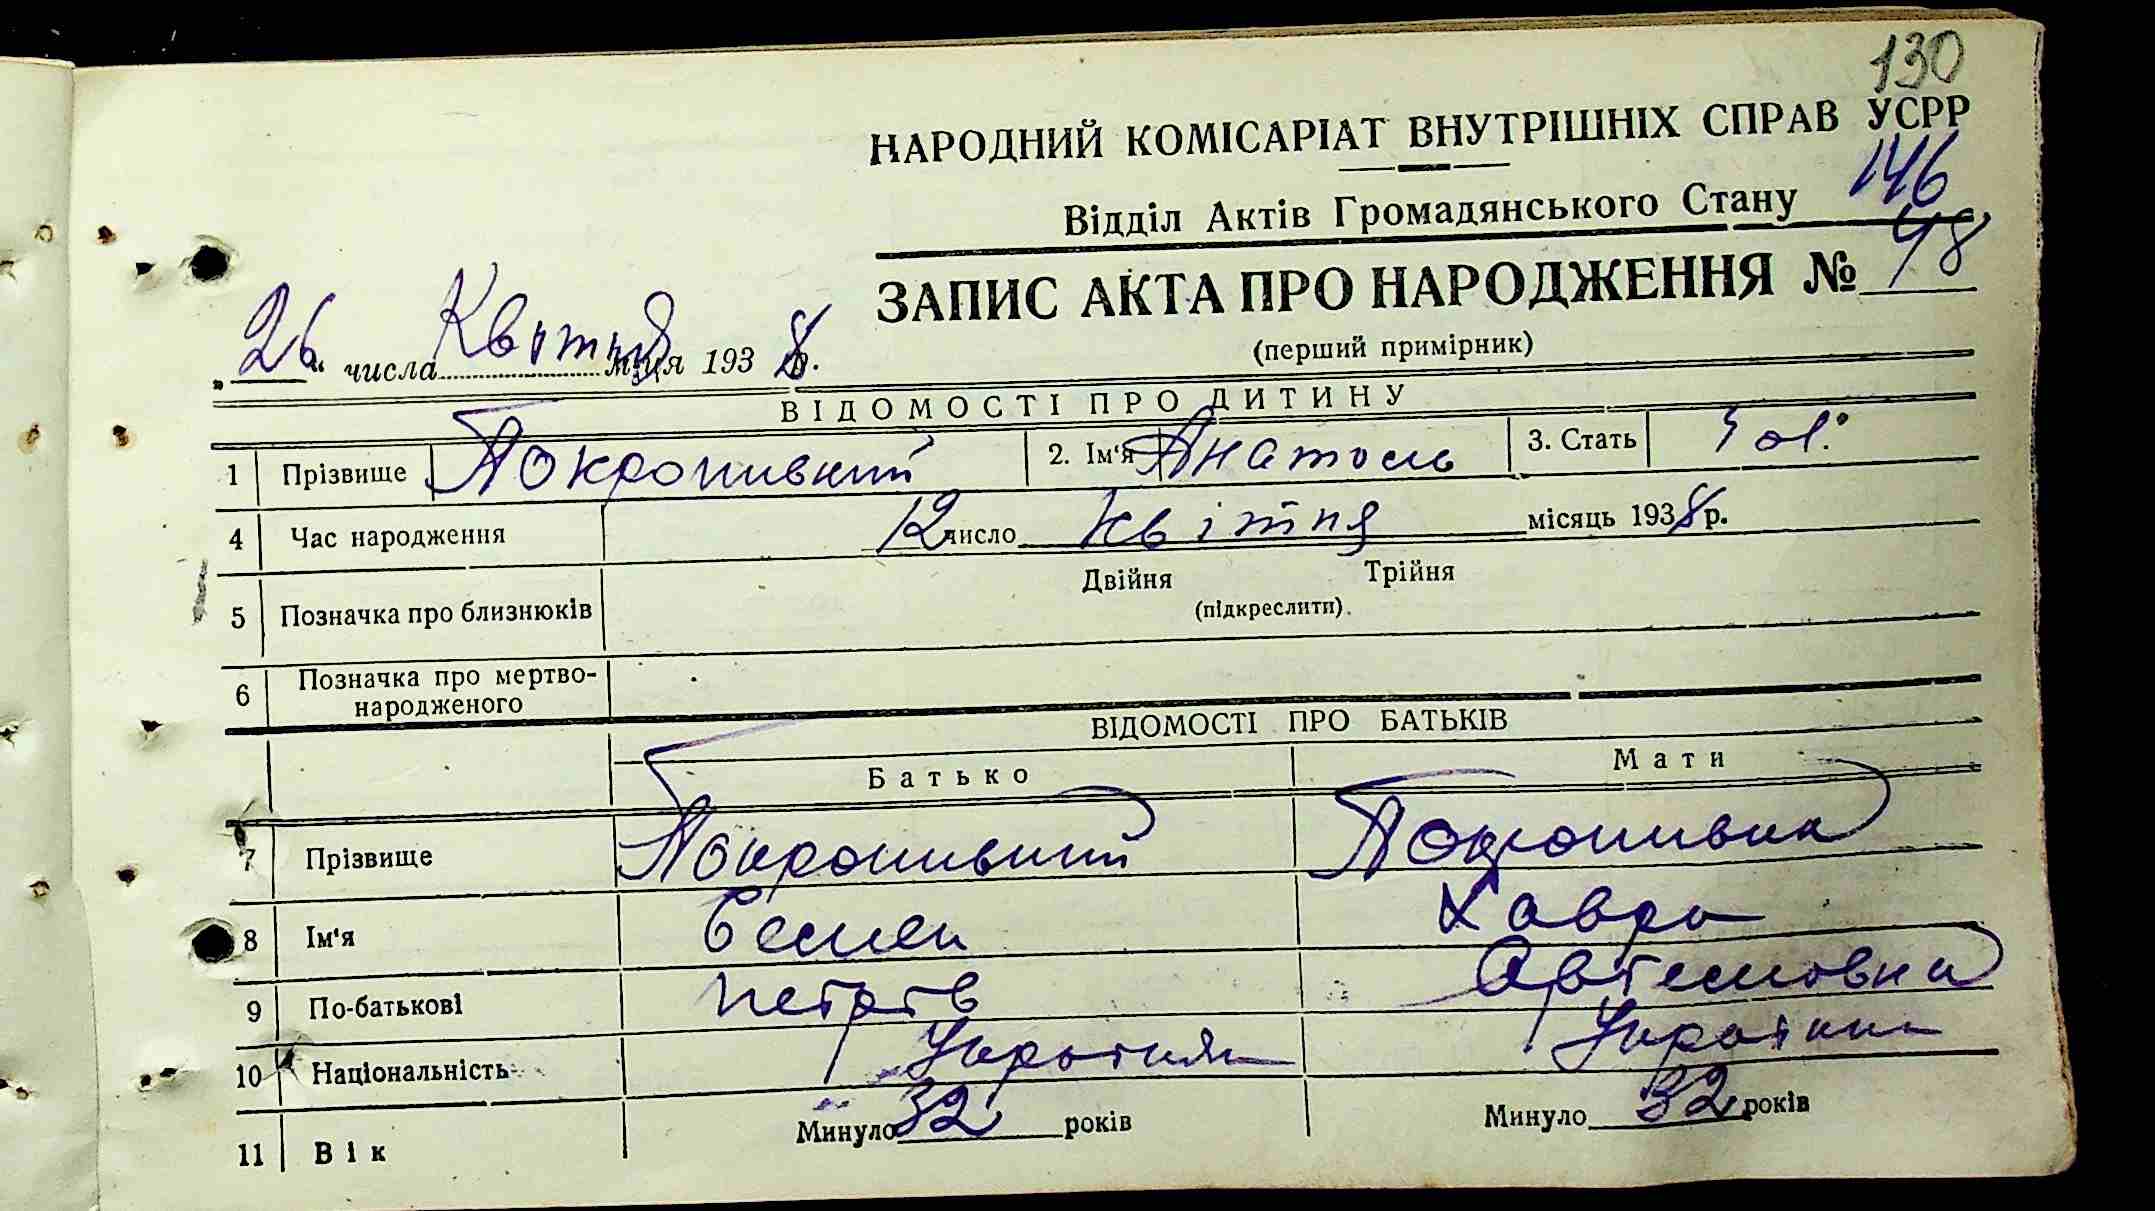 130
НАРОДНИЙ КОМІСАРІАТ ВНУТРІШНІХ СПРАВ УСРР
146
Відділ Актів Громадянського Стану
ЗАПИС АКТА ПРО НАРОДЖЕННЯ № 48
(перший примірник)
„26“ числа Квітня м‑ця 1938 р.
ВІДОМОСТІ ПРО ДИТИНУ
1 Прізвище Покропивний 2. Ім'я Анатоль 3. Стать чол.
4 Час народження 12 число квітня місяць 1938 р.
5 Позначка про близнюків Двійня Трійня
(підкреслити).
6 Позначка про мертво-
народженого
ВІДОМОСТІ ПРО БАТЬКІВ
Батько Мати
7 Прізвище Покропивний Покропивна
8 Ім'я Семен Хавра
9 По-батькові Петров Артемовна
10 Національність
11 Вік Минуло 32 років Минуло 32 років